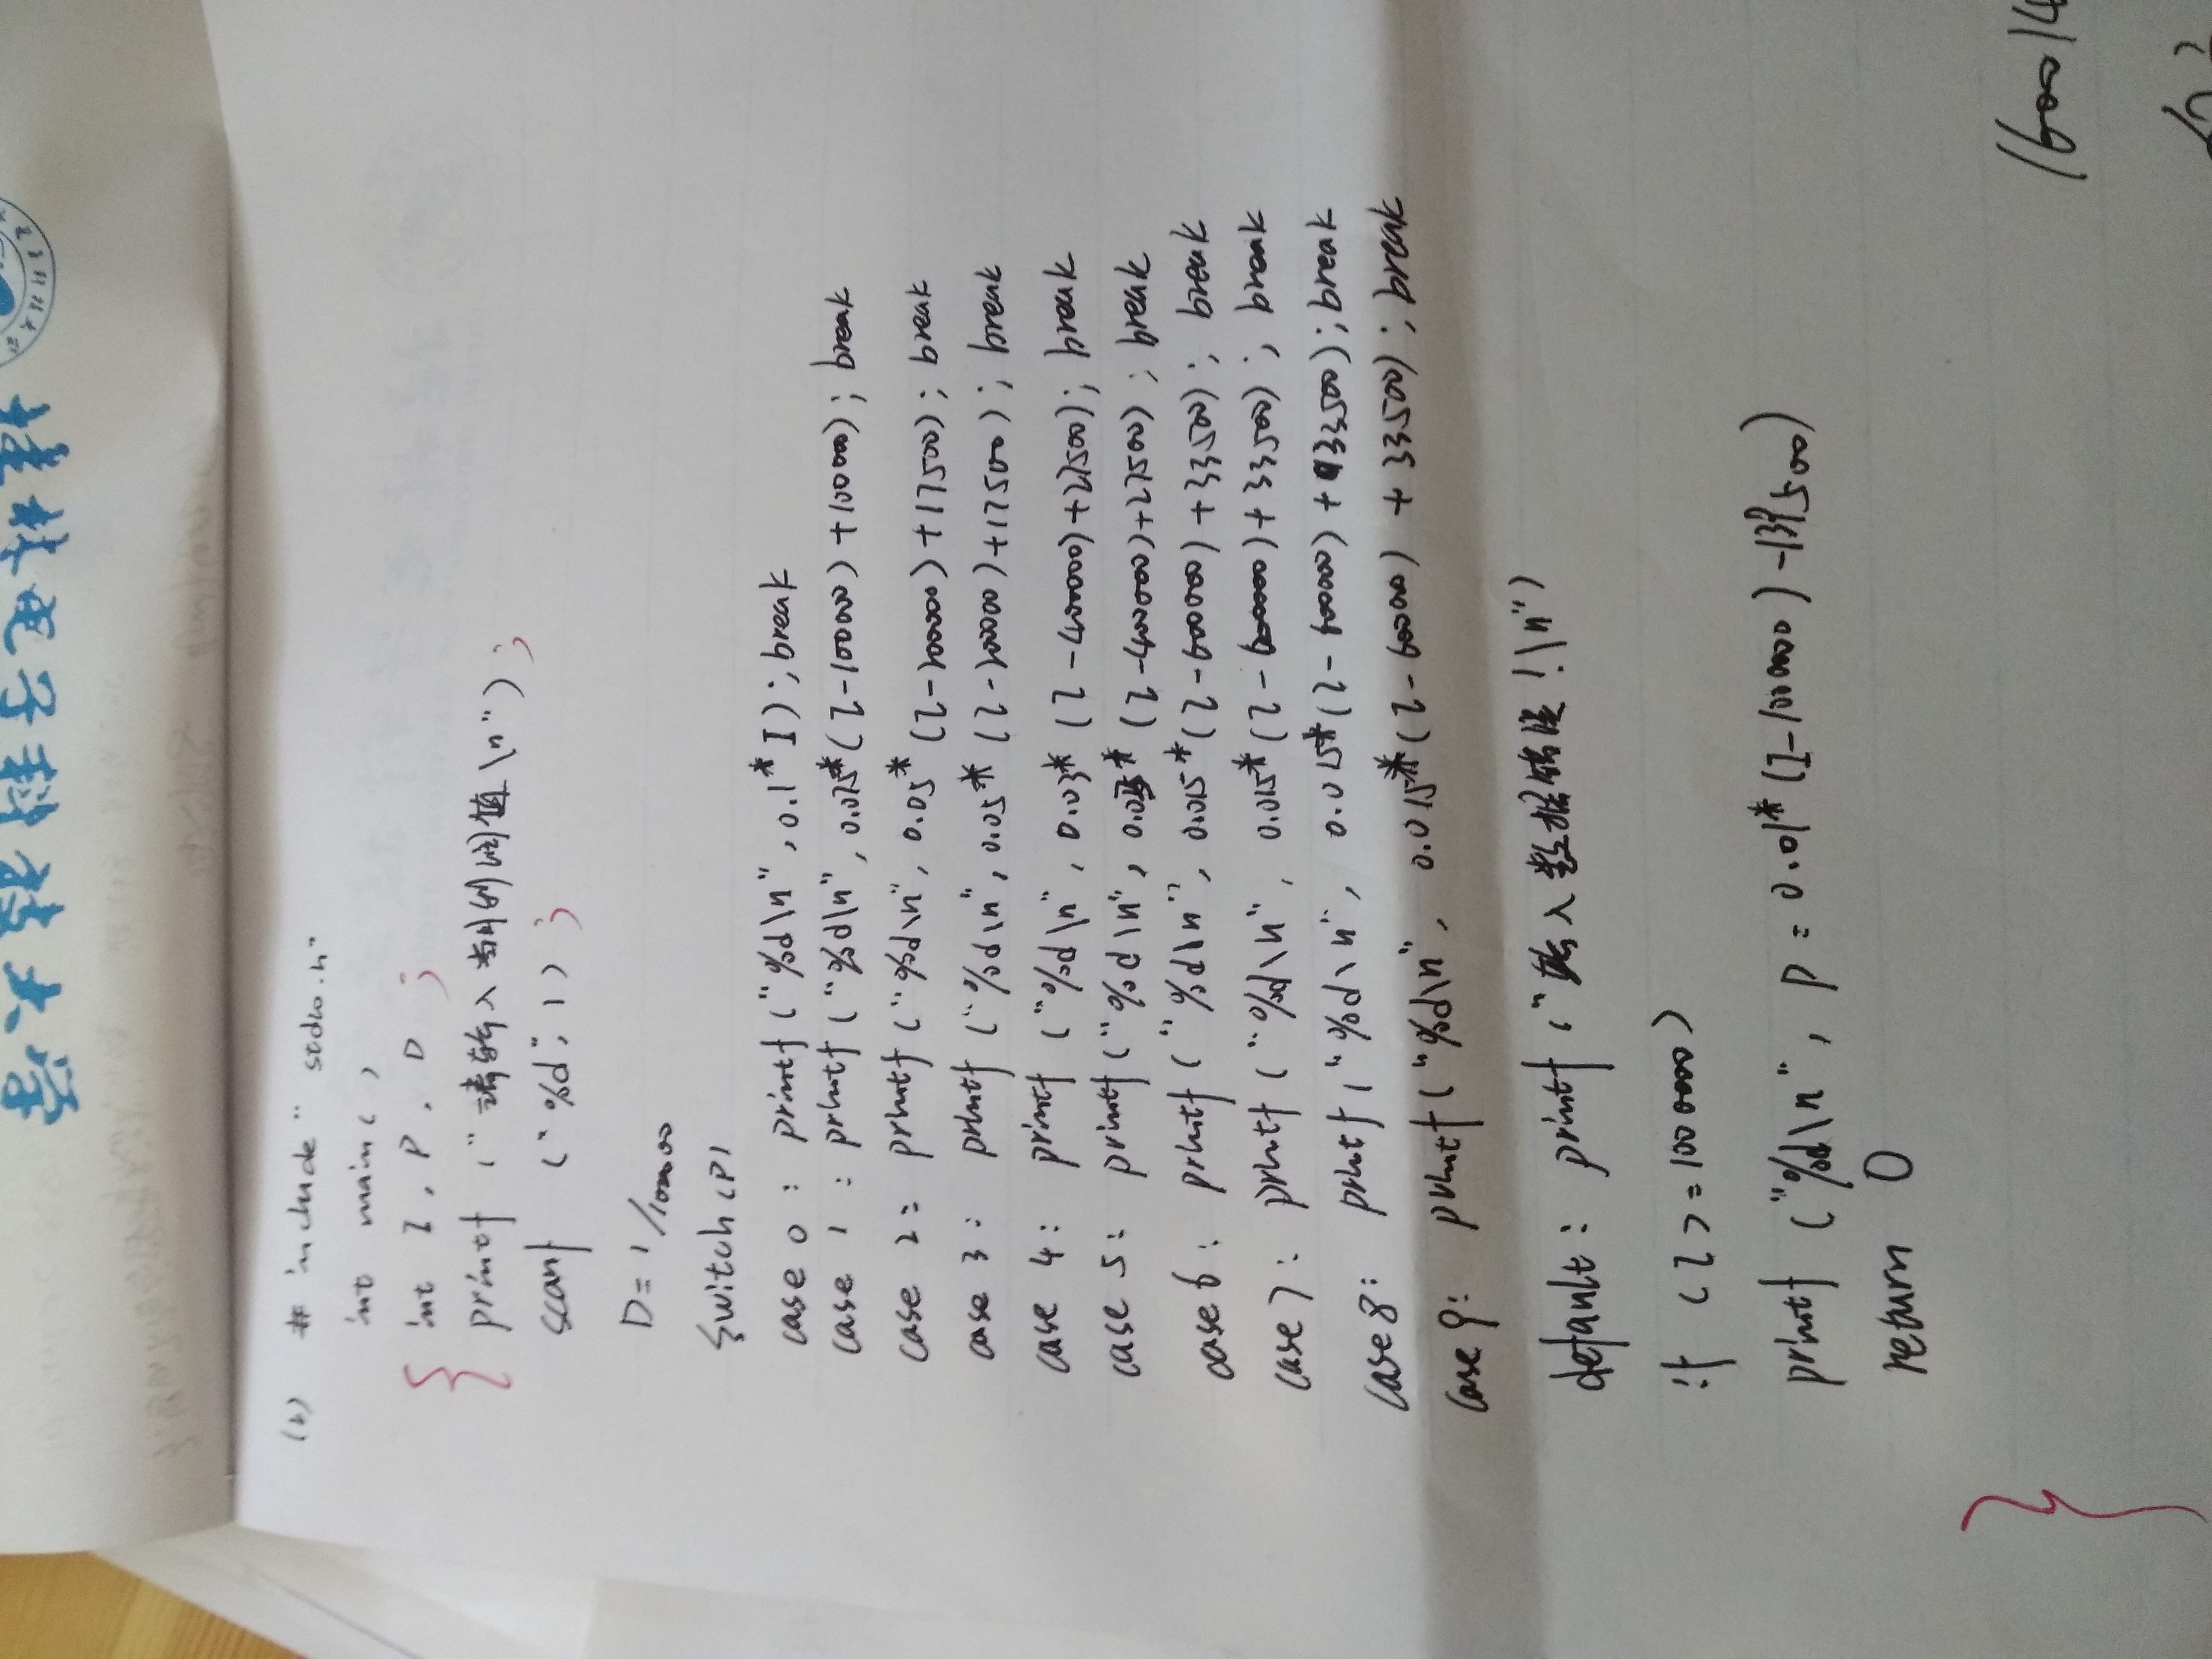 桂林电子科技大学
(2) # include " stdio.h"
int main( )
{ int I, P, D ;
printf ("请输入当月利润值\n") ;
scanf ("%d", I) ;
D= I/100000
switch (P)
case 0 : printf ("%d\n", 0.1* I) ; break
case 1 : printf ("%d\n", 0.075* (I-100000) +100000) ; break
case 2 : printf ("%d\n", 0.05* (I-200000) +17500) ; break
case 3 : printf ("%d\n", 0.05* (I-200000)+17500) ; break
case 4 : printf ("%d\n", 0.03* (I-400000)+27500) ; break
case 5 : printf ("%d\n", (I-400000)+27500) ; break
case 6 : printf ("%d\n", 0.015* (I-600000) +33500) ; break
case 7 : printf ("%d\n", 0.015* (I-600000) +33500) ; break
case 8 : printf ("%d\n", 0.015* (I-600000) + 33500) ; break
case 9 : printf ("%d\n", 0.015* (I-600000) + 33500) ; break
default : printf ("输入数据错误!\n")
if (I >= 1000000)
printf ("%d\n", P = 0.01* (I-1000000) -139500)
return 0
}
160014